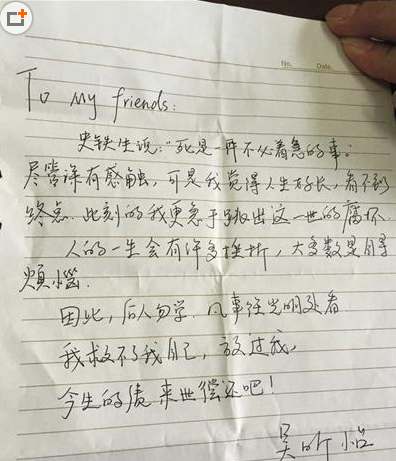 No.
Date.
To my friends:
史铁生说:“死是一件不必着急的事。
尽管深有感触,可是我觉得人生好长,看不到
终点.此刻的我更急于跳出这一世的腐坏
人的一生会有许多挫折,大多数是自寻
烦恼.
因此,后人勿学.凡事往光明处看
我救不了我自己,放过我,
今生的债来世偿还吧!
吴昕怡